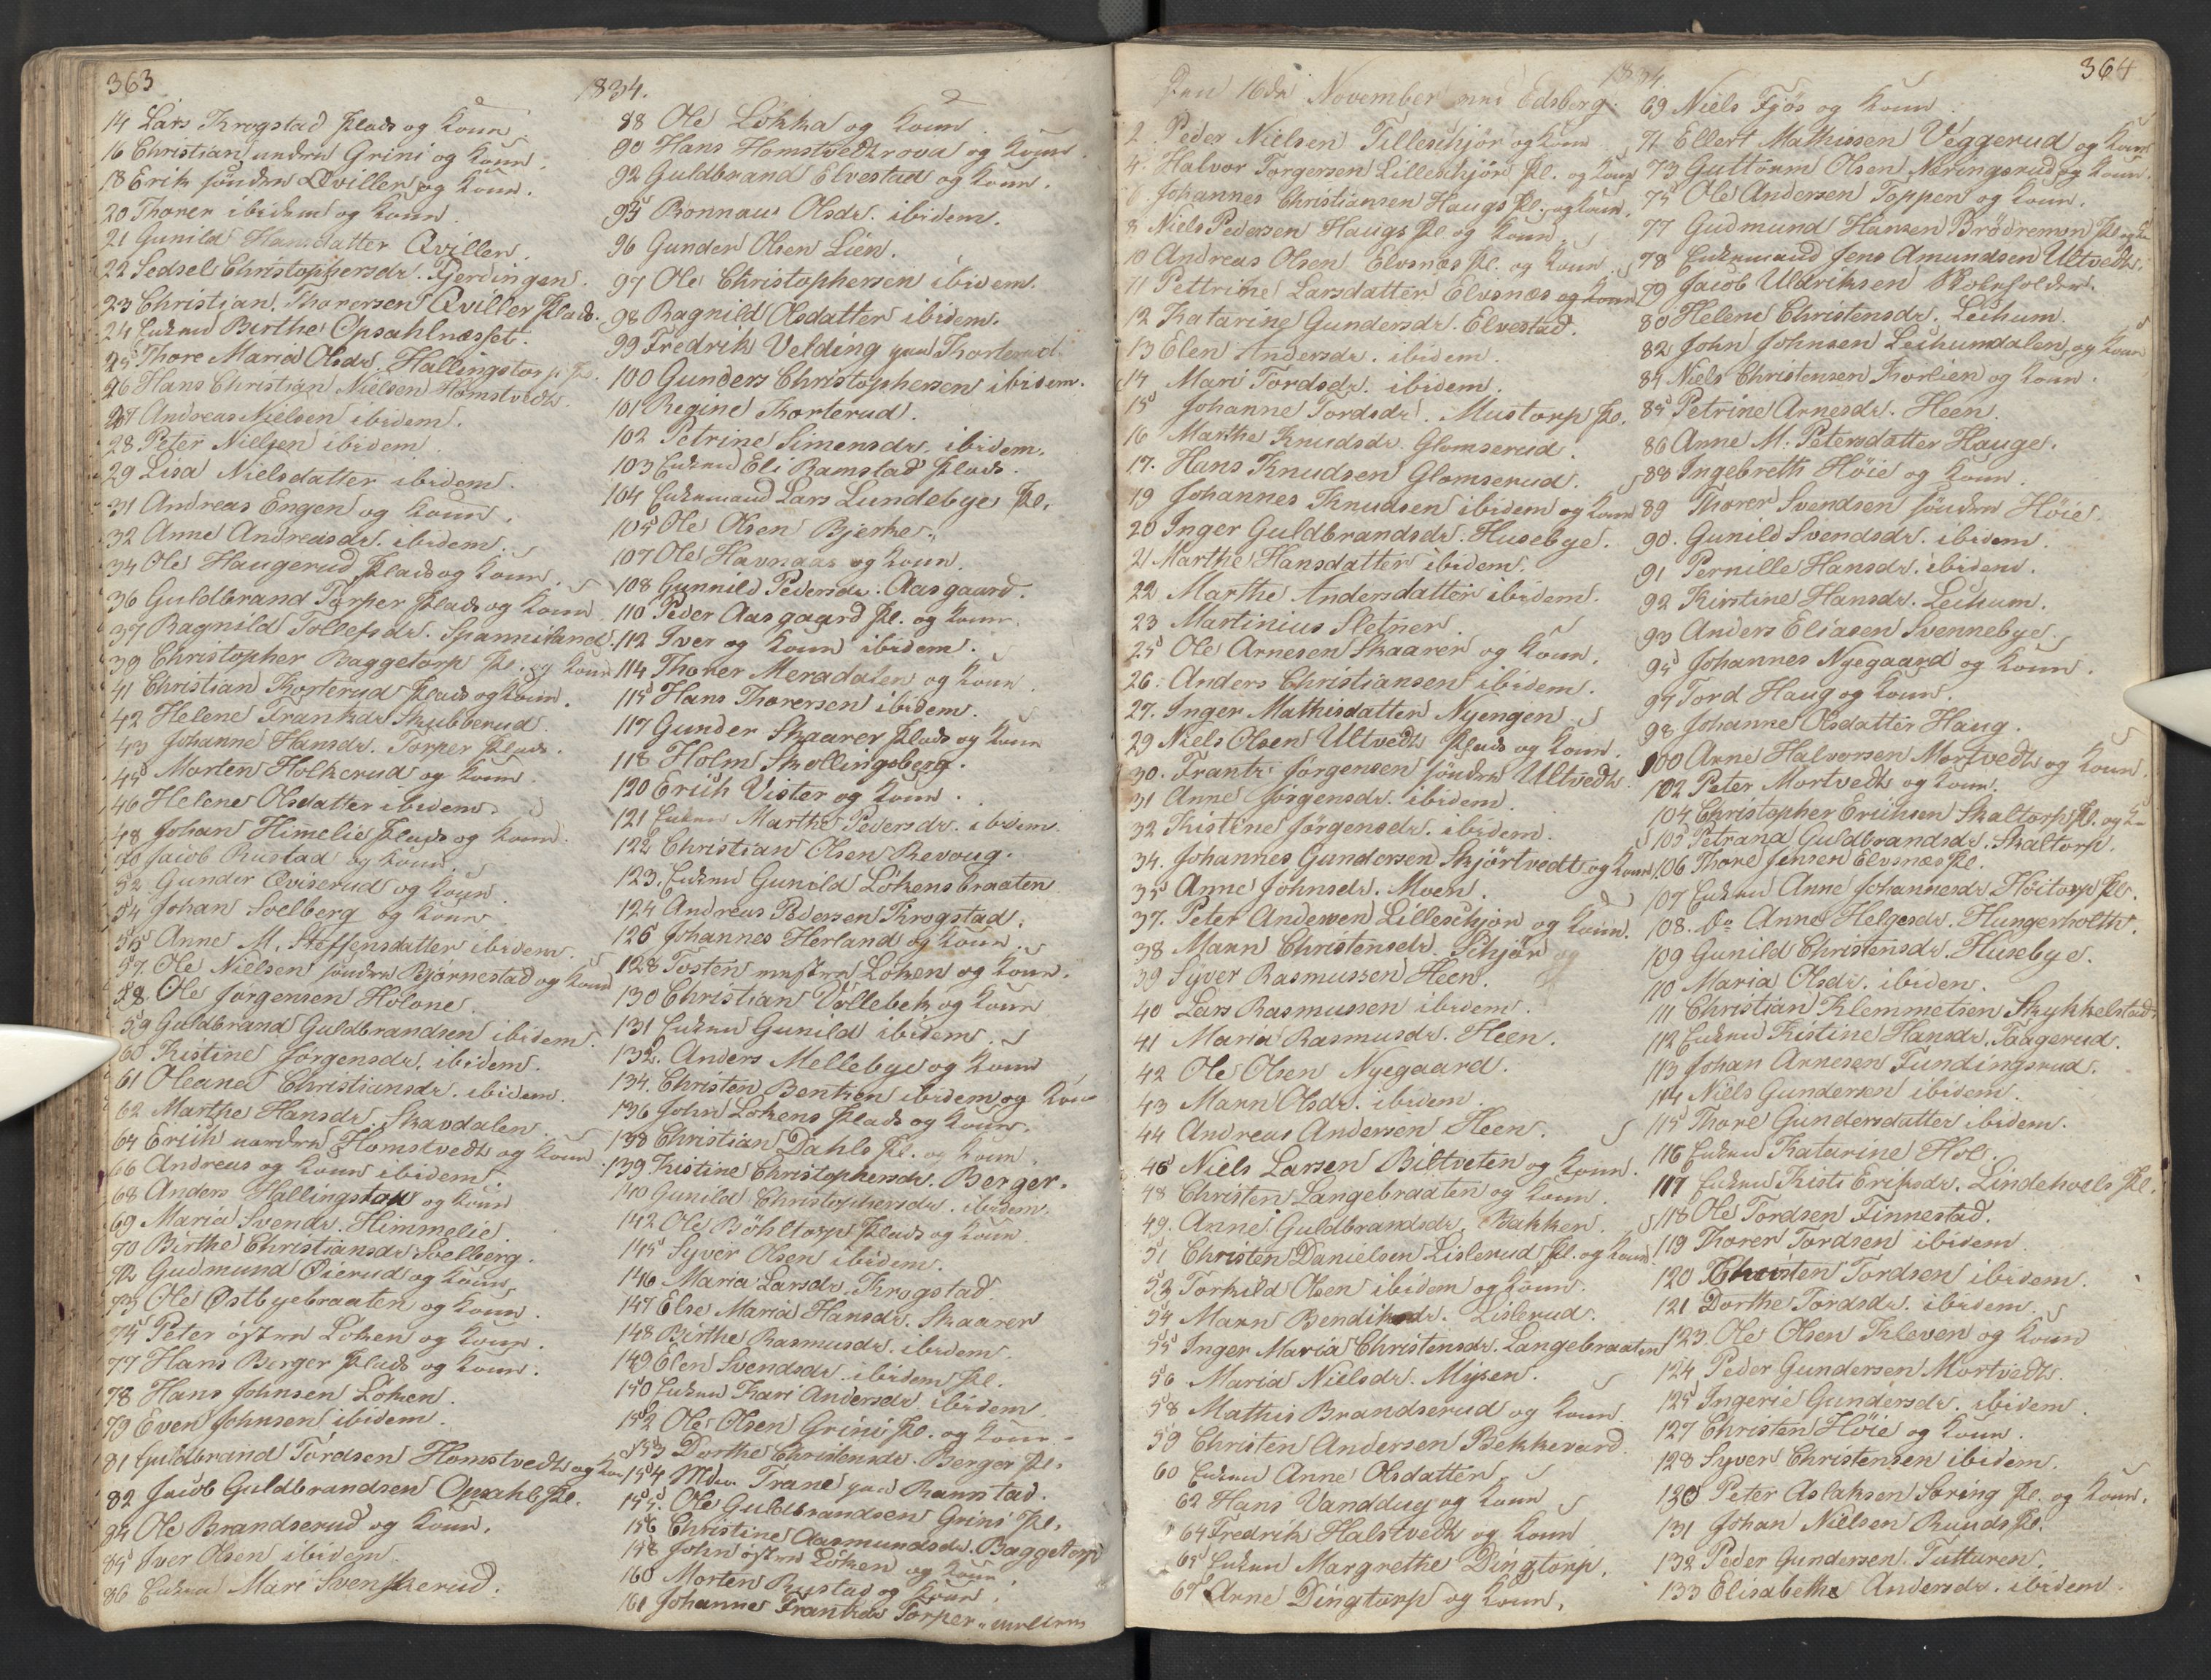 363
1834.
14 Lars Krogstad Plads og Koune.
16 Christian undre Grini og Koune.
18 Erik søndre Qviller og Koune.
20 Thorer ibidem og Koune.
21 Gunild Hansdatter Qviller.
22 Sedsel Christophersdr. Gjerdingen.
23 Christian Thorersen Qviller Plads.
24 Enken Birthe Opsahlnæsset.
25 Thore Maria Olsdr. Hallingstorp Pl.
26 Hans Christian Nielsen Homstvedt.
27 Andreas Nielsen ibidem.
28 Peter Nielsen ibidem.
29 Lisa Nielsdatter ibidem.
31 Andreas Engen og Koune.
32 Anne Andreasdr. ibidem.
34 Ole Haugerud Plads og Koune.
36 Guldbrand Torper Plads og Koune
37 Ragnild Tollefsdr. Spanniland.
39 Christopher Baggetorp Pl. og Koune
41 Christian Korterud Plads og Koune.
42 Helene Frantsdr. Skubberud.
43 Johanne Hansdr. Torper Plads.
45 Morten Holkerud og Koune.
46 Helene Olsdatter ibidem.
48 Johan Himelie Plads og Koune.
50 Jacob Rustad og Koune.
52 Gunder Qviserud og Koune.
54 Johan Solberg og Koune
55 Anne M. Steffensdatter ibidem.
57. Ole Nielsen søndre Bjørnestad og Koune
58. Ole Jørgensen Holone.
59 Guldbrand Guldbrandsen ibidem.
60 Kistine Jørgensdr. ibidem.
61 Oleane Christiansdr. ibidem.
62 Marthe Hansdr. Skavdalen.
64 Erich nordre Homstvedt og Koune.
66 Andreas og Koune ibidem.
68 Anders Hallingstad og Koune
69 Maria Svendr. Himmelie.
70 Birthe Christiansdr. Solberg.
72 Gudmund Øierud og Koune.
73 Ole Østbyebraaten og Koune.
75 Peter østre Løken og Koune.
77 Hans Berger Plads og Koune.
78 Hans Johnsen Løken.
79 Even Johnsen ibidem.
81 Guldbrand Tordsen Homstvedt og Koune
82 Jacob Guldbrandsen Opsahl Pl.
84 Ole Brandserud og Koune.
85 Iver Olsen ibidem.
86 Enken Mari Svenskerud.
88 Ole Løkka og Koune.
90 Hans Homstvedtrova og Koune.
92 Guldbrand Elvestad og Koune.
95 Ronnau Olsdr. ibidem.
96 Gunder Olsen Lien.
97 Ole Christophersen ibidem.
98 Ragnild Olsdatter ibidem.
99 Fredrik Velding paa Korterud.
100 Gunders Christophersen ibidem.
101 Regine Korterud.
102 Petrine Simensdr. ibidem.
103 Enken Eli Ramstad Plads.
104 Enkemand Lars Lundebye Pl.
105 Ole Olsen Bjerke.
107 Ole Havnaas og Koune.
108 Gunnild Pedersdr. Aasgaard.
110 Peder Aasgaard Pl. og Koune.
112 Iver og Koune ibidem.
114 Thorer Meradalen og Koune.
115 Hans Thorersen ibidem.
117 Gunder Skaarer Plads og Koune
118 Holm Skollingsberg.
120 Erich Vister og Koune.
121 Enken Marthe Pedersdr. ibidem.
122 Christian Olsen Revoug.
123. Enken Gunild Lökensbraaten
124 Andreas Pedersen Krogstad.
126 Johannes Herland og Koune.
128 Tosten vestre Løken og Koune.
130 Christian Vollebek og Koune
131 Enken Gunild ibidem.
132. Anders Mellebye og Koune
134. Christen Benken ibidem og Koune
136 John Lökens Plads og Koune.
138 Christian Dahls Pl. og Koune.
139 Kistine Christophersdr. Berger.
140 Gunild Christophersdr. ibidem.
142 Ole Böhltorp Plads og Koune.
145 Syver Olsen ibidem.
146 Maria Larsdr. Krogstad.
147 Else Maria Hansdr. Skaarer
148 Birthe Rasmusdr. ibidem.
149 Elen Svendsdr. ibidem Pl.
150 Enken Kari Andersdr. ibidem.
152 Ole Olsen Grini Pl. og Koune.
153 Dorthe Christensdr. Berger Pl.
154 Mdm. Trane paa Ramstad.
155. Ole Guldbrandsen Grini Pl.
156 Christine Aasmundsdr. Baggetorp
158 John østre Løken og Koune.
160 Morten Rustad og Koune.
161 Johanne Frantsdr. Torper
364
1834.
Den 16de November ved Edsberg.
2. Peder Nielsen Lilleschjør og Koune
4. Halvor Torgersen Lilleschjør Pl. og Koune
6. Johannes Christiansen Haugs Pl. og Koune.
8 Niels Pedersen Haugs Pl. og Koune.
10 Andreas Olsen Elvsnæs Pl. og Koune.
11 Pettrine Larsdatter Elvsnæs og Koune
12 Katarine Gundersdr. Elvestad.
13 Elen Andersdr. ibidem.
14 Mari Tordsdr. ibidem.
15 Johanne Tordsdr. Mustorp Pl.
16 Marthe Knudsdr. Glomserud.
17. Hans Knudsen Glomserud.
19 Johannes Knudsen ibidem og Koune
20 Inger Guldbrandsdr. Husebye.
21 Marthe Hansdatter ibidem.
22 Marthe Andersdatter ibidem.
23 Martinius Sletner.
25 Ole Arnesen Skaarer og Koune.
26. Anders Christiansen ibidem.
27. Inger Mathisdatter Nyengen.
29 Niels Olsen Ultvedt Plads og Koune.
30. Frantz Jørgensen søndre Ultvedt.
31 Anne Jörgensdr. ibidem.
32 Kistine Jörgensdr. ibidem.
34. Johannes Gundersen Skjørtvedt og Koune
35 Anne Johnsdr. Moen.
37. Peter Andersen Lilleschjør og Koune.
38 Marn Christensdr. Schjør og
39 Syver Rasmussen Heen.
40 Lars Rasmussen ibidem.
41 Maria Rasmusdr. Heen.
42 Ole Olsen Nyegaard.
43 Marn Olsdr. ibidem.
44 Andreas Andersen Heen.
46 Niels Larsen Biltveten og Koune.
48 Christen Langebraaten og Koune.
49. Anne Guldbrandsdr. Bakken.
51 Christen Danielsen Lislerud Pl. og Koune
53 Torkild Olsen ibidem og Koune.
54 Marn Bendiksdr. Lislerud.
55 Inger Maria Christensdr. Langebraaten
56 Maria Nielsdr. Mysen.
58 Mathis Brandserud og Koune
59 Christen Andersen Bekkevard.
60 Enken Anne Olsdatter.
62 Hans Vanddug og Koune
64 Fredrik Halstvedt og Koune
65 Enken Margrethe Dingtorp.
67 Arne Dingtorp og Koune.
69 Niels Fjøs og Koune.
71 Ellert Mathissen Veggerud og Koune
73 Guttorm Olsen Næringsrud og Koune.
75 Ole Andersen Toppen og Koune.
77 Gudmund Hansen Brödremon Pl. og Ko
78 Enkemand Jens Amundsen Ultvedt.
79 Jacob Uldriksen Skoleholder.
80 Helene Christensdr. Leikum.
82 John Johnsen Leikumdalen og Koune
84 Niels Christensen Korlien og Koune.
85 Petrine Arnesdr. Heen.
86 Anne M. Petersdatter Hauge.
88 Ingebreth Höie og Koune.
89 Thorer Svendsen söndre Höie.
90. Gunild Svendsdr. ibidem.
91 Pernille Hansdr. ibidem.
92 Kirstine Hansdr. Leikum.
93 Anders Eliasen Svennebye.
95 Johannes Nyegaard og Koune.
97 Tord Haug og Koune.
98 Johanne Olsdatter Haug.
100 Arne Halvorsen Mortvedt og Koune.
102 Peter Mortvedt og Koune.
104 Christopher Erichsen Skaltorp Pl. og K
105 Petrana Guldbrandsdr. Skaltorp.
106 Thore Jensen Elvsnæs Pl.
107 Enken Anne Johannesdr. Höitorp Pl.
108. Do Anne Helgesdr. Hungerholtt.
109 Gunild Christensdr. Husebye.
110 Maria Olsdr. ibidem.
111 Christian Klemmetsen Skykkelstad.
112 Enken Kistine Hansdr. Taagerud.
113 Johan Arnesen Fundingsrud.
114 Niels Gundersen ibidem.
115 Thore Gundersdatter ibidem.
116 Enken Katarine Hol.
117 Enken Kisti Eriksdr. Lindehols Pl.
118 Ole Tordsen Finnestad.
119 Thorer Tordsen ibidem
120 Christen Tordsen ibidem.
121 Dorthe Tordsdr. ibidem.
123. Ole Olsen Kleven og Koune
124 Peder Gundersen Mortvedt.
125 Ingerie Gundersdr. ibidem.
127 Christen Höie og Koune.
128 Syver Christensen ibidem.
130 Peter Aslaksen Sæving Pl. og Koune.
131 Johan Nielsen Ruuds Pl.
132 Peder Gundersen Tutturen.
133 Elisabethe Andersdr. ibidem.